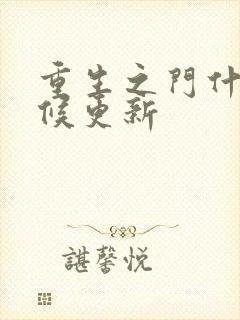 重生之門什
候更新
諶馨悦